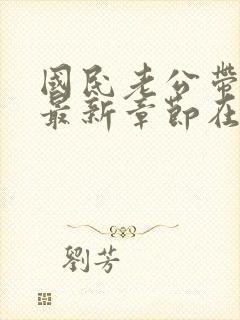 國民老公帶
最新章節在
劉芳